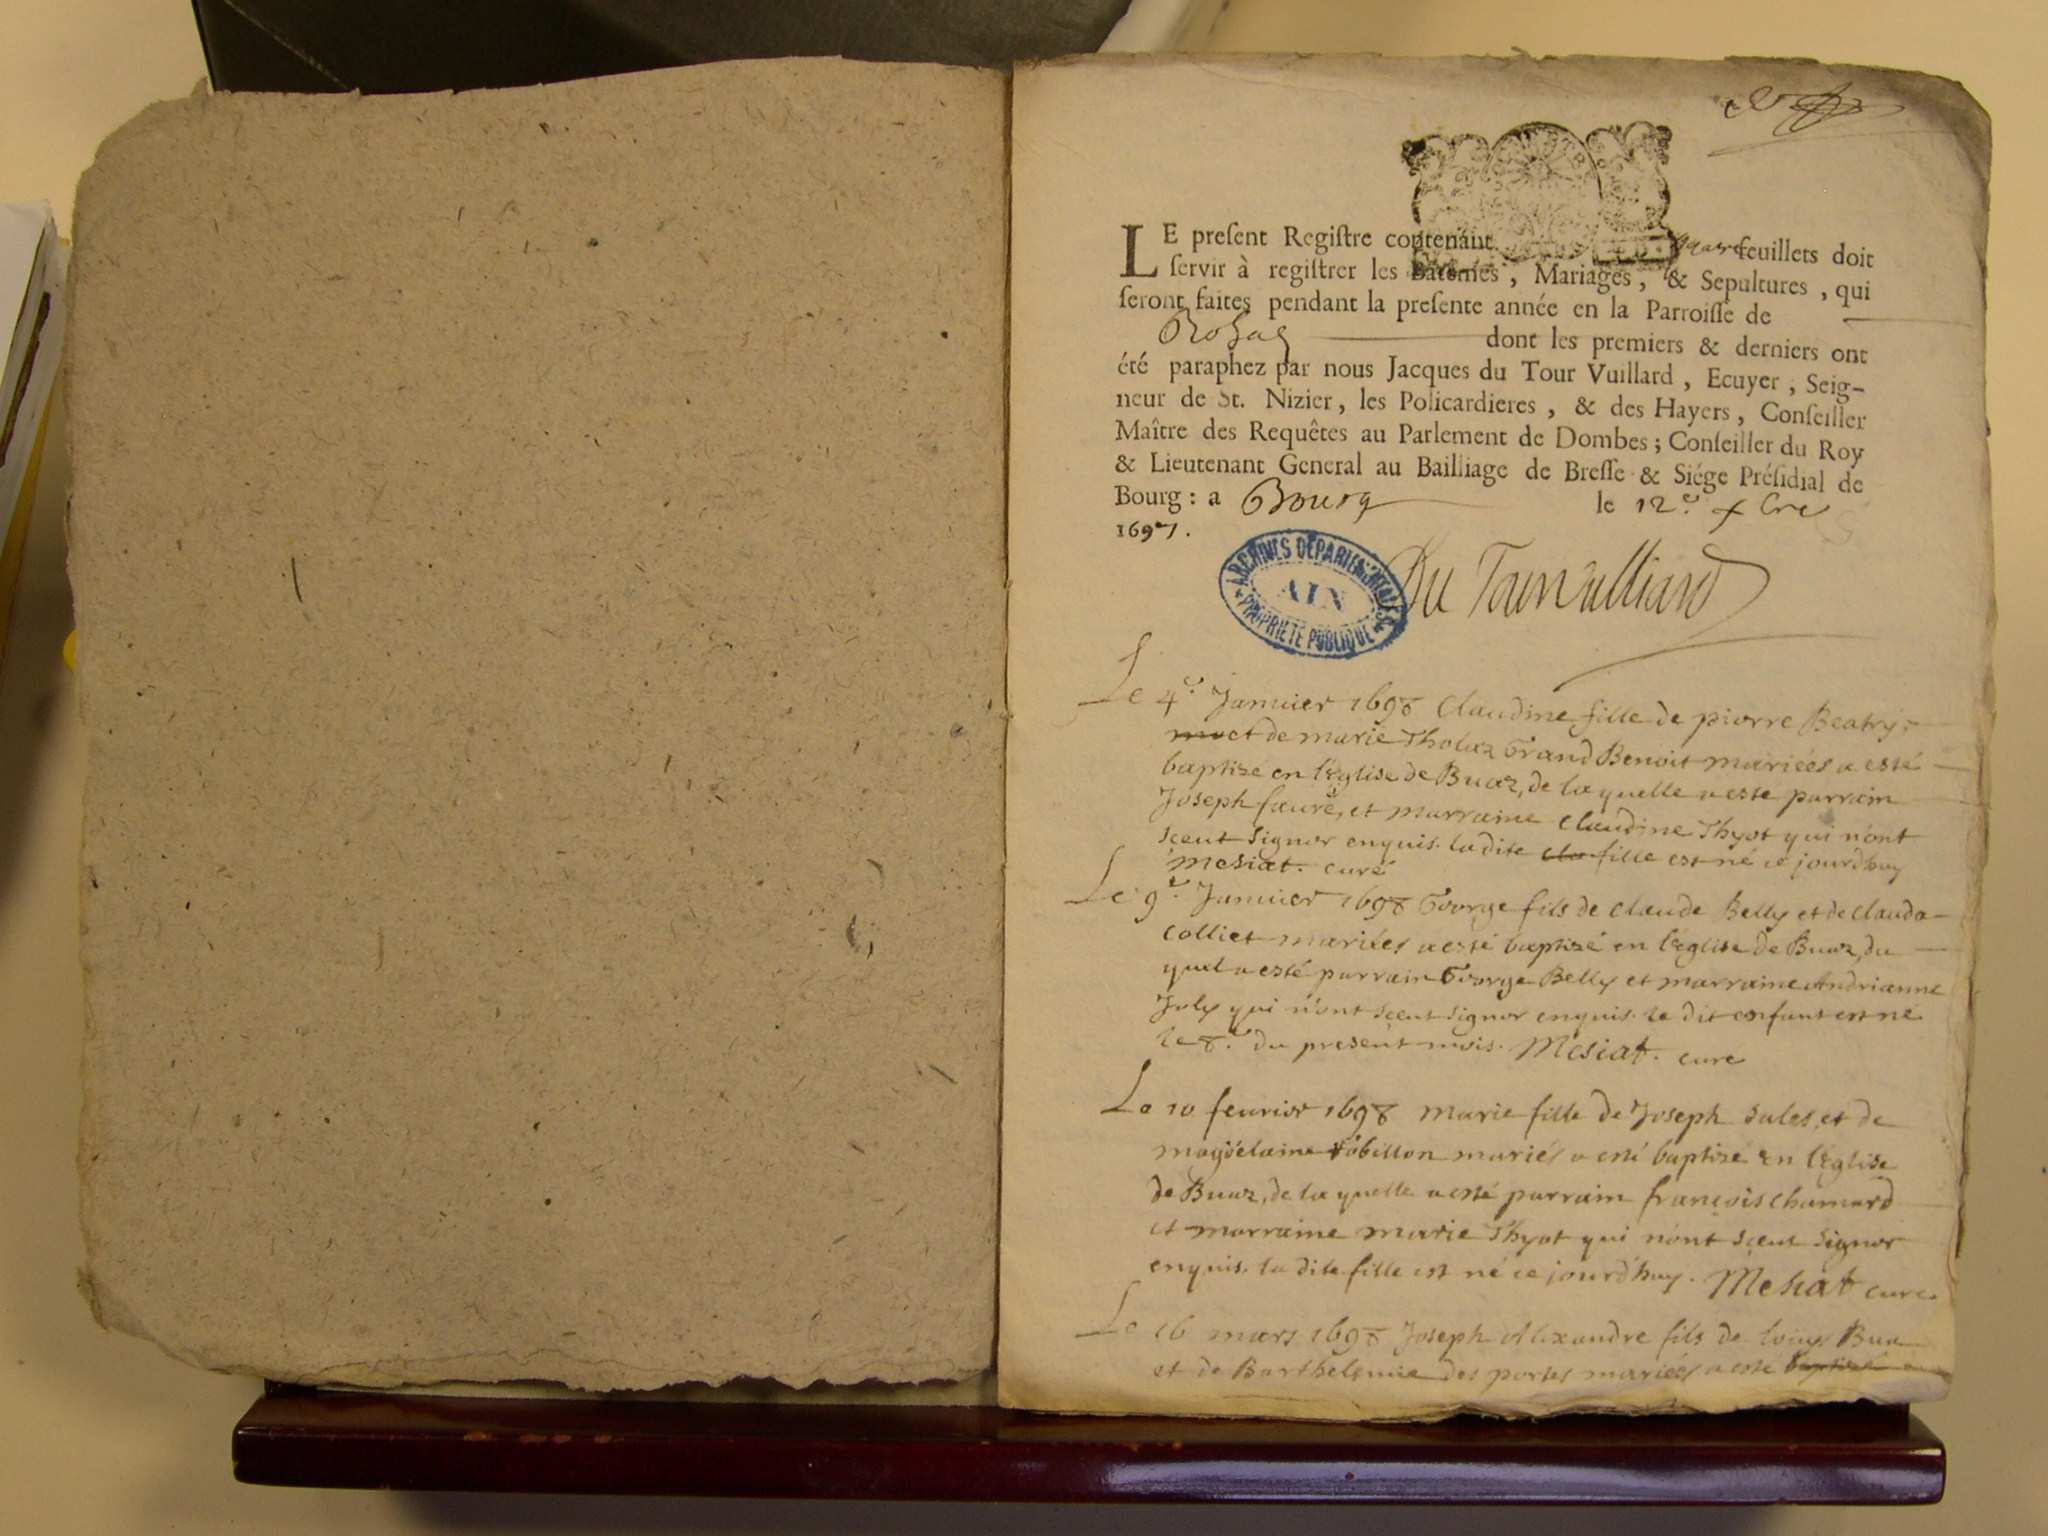 LE preſent Regiſtre contenant quatre feuillets doit
ſervir à regiſtrer les Batêmes, Mariages, & Sepultures, qui
ſeront faites pendant la preſente année en la Parroiſſe de
dont les premiers & derniers ont
été paraphez par nous Jacques du Tour Vuillard, Ecuyer, Seig-
neur de St. Nizier, les Policardieres, & des Hayers, Conſeiller
Maître des Requêtes au Parlement de Dombes; Conſeiller du Roy
& Lieutenant General au Bailliage de Breſſe & Siége Préſidial de
Bourg: a Bourg le 12e
1697.
ARCHIVES DEPARTEMENTALES
AIN
PROPRIETE PUBLIQUE
Du Tourvulliard
Le 4e. Januier 1698 Claudine fille de pierre Beatrix
et de marie Tholaz Grand Benoit mariées a esté
baptizé en l'Eglise de Buaz, de laquelle a esté parrain
Joseph faure, et marraine Claudine Thyot qui n'ont
sçeut signer enquis. ladite fille est né ce jourdhuy
Mesiat. curé
Le 9e. Januier 1698 George fils de Claude Belly et de Clauda
Colliet mariées a esté baptizé en l'Eglise de Buaz, du
quel a esté parrain George Belly et marraine Andrianne
July qui n'ont sçeut signer enquis. le dit enfant est né
le 8e. du present mois. Mesiat. curé
Le 10 feurier 1698 marie fille de Joseph Sales, et de
magdelaine robillon mariés a esté baptizé en l'Eglise
de Buaz, de laquelle a esté parrain françois Chanard
et marraine marie Thyot qui n'ont sçeut signer
enquis. la dite fille est né ce jourdhuy. Mesiat curé
Le 16 mars 1698 Joseph Alixandre fils de Louys Bua
et de Barthelemie des portes mariées a esté baptizé